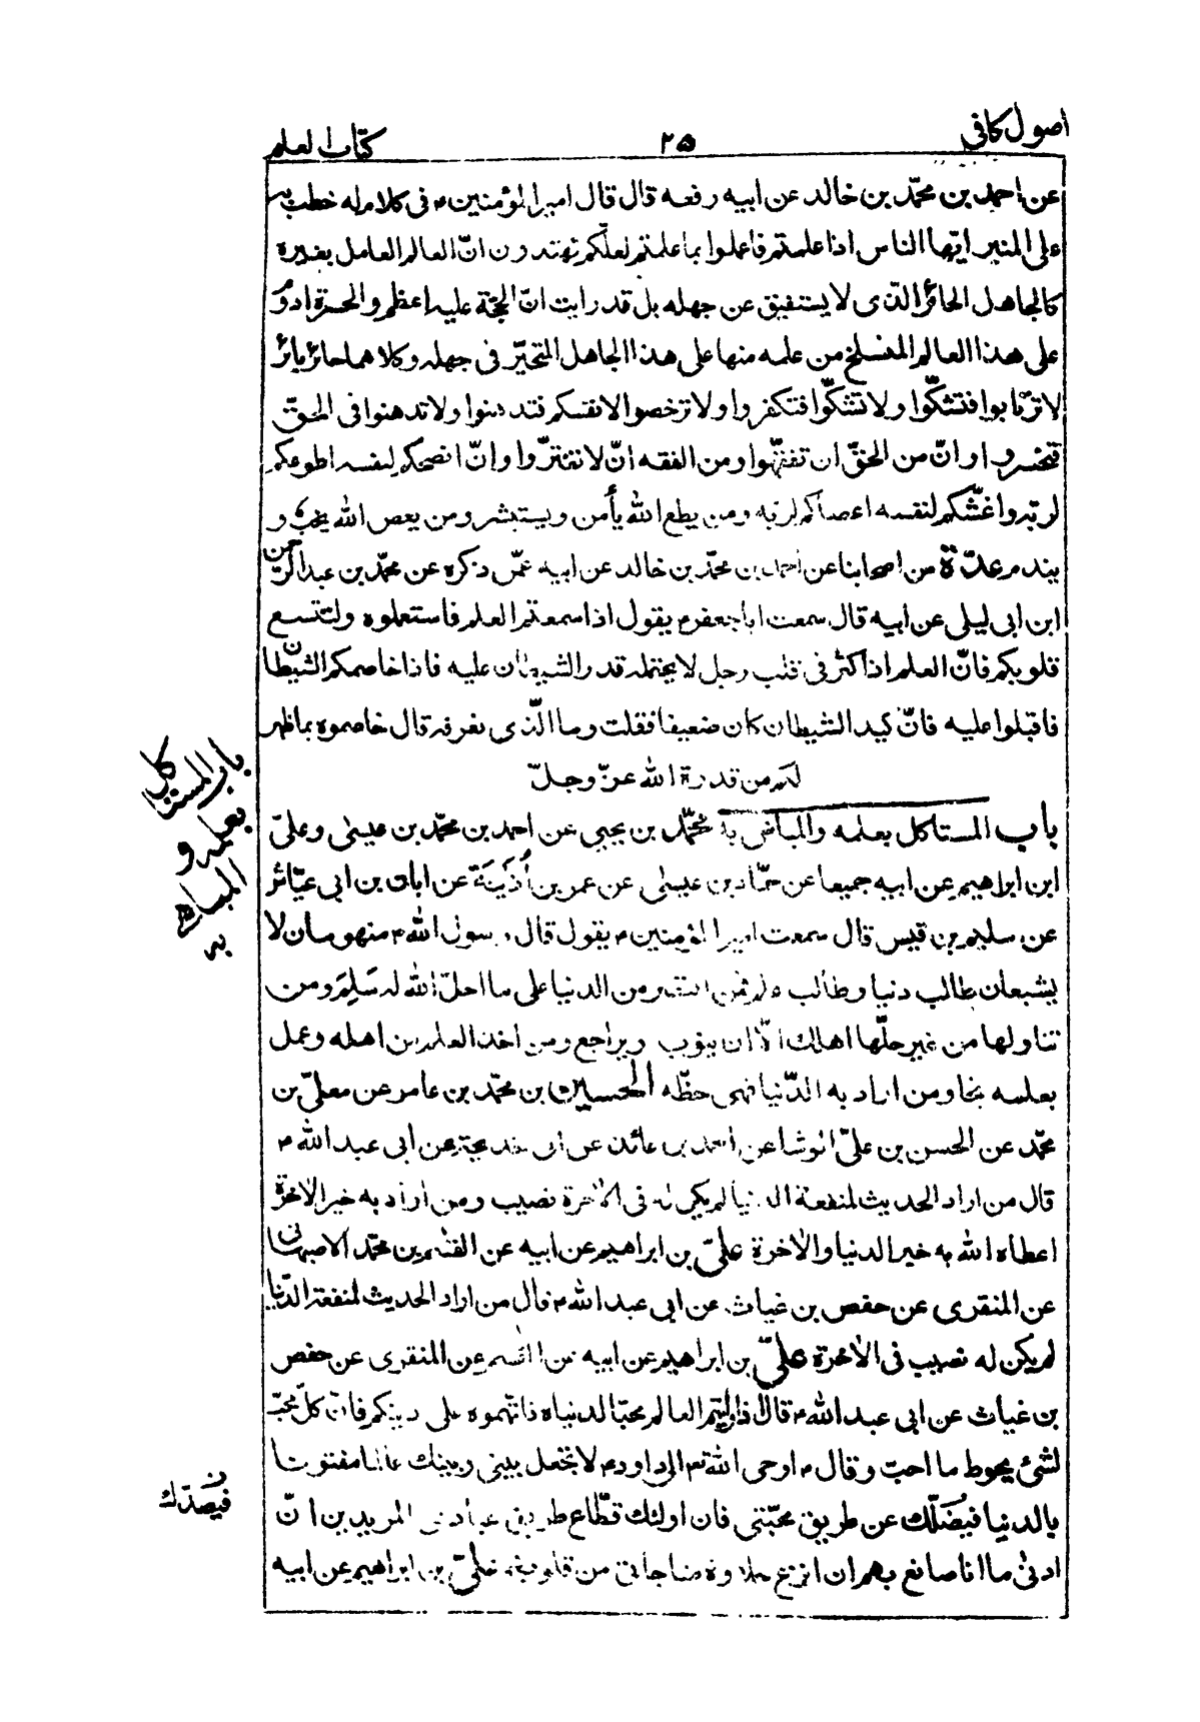 اصول كافى
٢٥
كتاب العلم
عن احمد بن محمّد بن خالد عن ابيه رفعه قال قال امير المؤمنين ؑ فى كلام له خطب به
على المنبر ايّها الناس اذا علمتم فاعملوا بما علمتم لعلّكم تهتدون انّ العالم العامل بغيره
كالجاهل الحائر الذى لا يستفيق عن جهله بل قد رايت انّ الحجّة عليه اعظم والحسرة ادوم
على هذا العالم المنسلخ من علمه منها على هذا الجاهل المتحيّر فى جهله وكلاهما حائر بائر
لا ترتابوا فتشكّوا ولا تشكّوا فتكفروا ولا ترخصوا لانفسكم فتدهنوا ولا تدهنوا فى الحقّ
فتخسروا وانّ من الحقّ ان تفقّهوا ومن الفقه انّ لا تغترّوا وانّ انصحكم لنفسه اطوعكم
لربّه واغشّكم لنفسه اعصاكم لربّه ومن يطع الله يأمن ويستبشر ومن يعص الله يخب و
يندم عدّة من اصحابنا عن احمد بن محمّد بن خالد عن ابيه عمّن ذكره عن محمّد بن عبد الرحمن
ابن ابى ليلى عن ابيه قال سمعت ابا جعفر ؑ يقول اذا سمعتم العلم فاستعملوه ولتتسع
قلوبكم فانّ العلم اذا كثر فى قلب رجل لا يحتمله قدر الشيطان عليه فاذا خاصمكم الشيطان
فاقبلوا عليه فانّ كيد الشيطان كان ضعيفا فقلت وما الّذى نعرفه قال خاصموه بما ظهر
لكم من قدرة الله عزّ وجلّ
باب المستاكل بعلمه والمباهى به محمّد بن يحيى عن احمد بن محمّد بن عيسى وعلىّ
ابن ابراهيم عن ابيه جميعا عن حمّاد بن عيسى عن عمر بن أُذَينَة عن ابان بن ابى عيّاش
عن سليم بن قيس قال سمعت امير المؤمنين ؑ يقول قال رسول الله ؐ منهومان لا
يشبعان طالب دنيا وطالب علم فمن اقتصر من الدنيا على ما احلّ الله له سَلِمَ ومن
تناولها من غير حلّها اهلك الّا ان يتوب ويراجع ومن اخذ العلم من اهله وعمل
بعلمه نجا ومن اراد به الدّنيا فهى حظّه الحسين بن محمّد بن عامر عن معلىّ بن
محمّد عن الحسن بن علىّ الوشا عن احمد بن عائذ عن ابى خديجة عن ابى عبد الله ؑ
قال من اراد الحديث لمنفعة الدنيا لم يكن له فى الاخرة نصيب ومن اراد به خير الاخرة
اعطاه الله به خير الدنيا والاخرة علىّ بن ابراهيم عن ابيه عن القسم بن محمّد الاصبهانى
عن المنقرى عن حفص بن غياث عن ابى عبد الله ؑ قال من اراد الحديث لمنفعة الدّنيا
لم يكن له نصيب فى الاخرة علىّ بن ابراهيم عن ابيه عن القسم عن المنقرى عن حفص
بن غياث عن ابى عبد الله ؑ قال اذا رايتم العالم محبّا لدنياه فاتّهموه على دينكم فانّ كلّ محبّ
لشئ يحوط ما احبّ وقال ؑ اوحى الله تعم الى داود ؑ لا تجعل بينى وبينك عالما مفتونا
بالدنيا فيُضلّك عن طريق محبّتى فان اولئك قطّاع طريق عبادى المريدين انّ
ادنى ما انا صانع بهم ان انزع حلاوة مناجاتى من قلوبهم علىّ بن ابراهيم عن ابيه
باب المستاكل
بعلمه و
المباهى
به
ن
فيصدّك